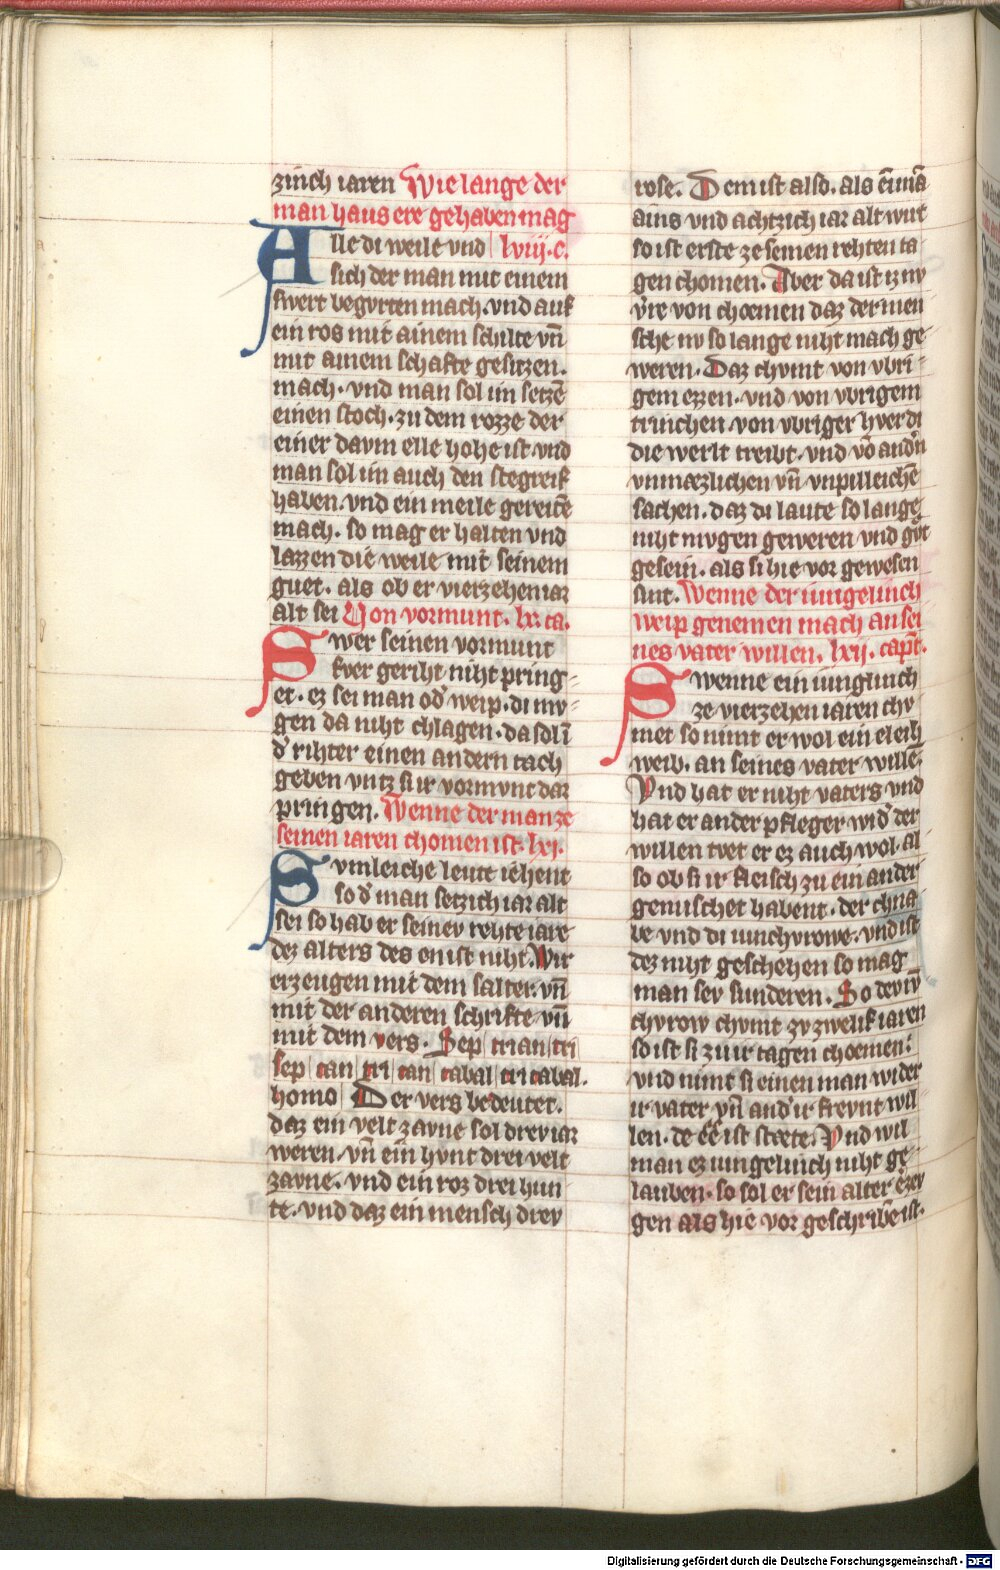 zinch iaren Wie lange der
man haus ere gehaben mag
Alle di weile vnd lviiij. c.
sich der man mit einem
swert begvrten mach. vnd auf
ein ros mit ainem schilte vn̄
mit ainem schafte gesitzen.
mach. vnd man sol im setzē
einen stoch. zu dem rozze der
einer davm elle hohe ist vnd
man sol im auch den stegreif
haben. vnd ein meile gereitē
mach. so mag er halten vnd
lazzen die weile mit seinem
guet. als ob er vierzehen iar
alt sei Von vormunt. lx. ca.
Swer seinen vormunt
fver geriht niht pring-
et. ez sei man od' weip. di mv-
gen da niht chlagen. da sol ī
d' rihter einen andern tach
geben vntz si ir vormvnt dar
pringen. Wenne der man ze
seinen iaren chomen ist. lxi.
Svmleiche leute iehent
so d' man setzich iar alt
sei so hab er seinev rehte iare
dez alters des en ist niht. Wir
erzeugen mit dem salter. vn̄
mit der anderen schrifte vn̄
mit dem vers. Sep trian tri
sep tan tri tan tabal tri tabal.
homo Der vers bedeutet.
daz ein velt zavne sol drev iar
weren. vn̄ ein hvnt drei velt
zavne. vnd ein roz drei hun
te. vnd daz ein mensch drev
rose. Dem ist also. als ein mā
ains vnd achtzich iar alt wirt
so ist erste ze seinen rehten ta-
gen chomen. Aber da ist iz nv
v̓re von choemen daz der men
sche nv so lange niht mach ge-
weren. Daz chvmt von vbri-
gem ezzen. vnd von vbrigem
trinchen. von vbriger hver di
die werlt treibt. vnd vō and'n
vnmæzlichen vn̄ vnpilleichē
sachen. daz di laute so lange
niht mvgen geweren vnd
gesein. als si hie vor gewesen
sint. Wenne der iungelinch
weip genemen mach an sei
nes vater willen. lxij. capt.
Swenne ein iunglinch
ze vierzehen iaren chv
met so nimt er wol ein eleih
weib. an seines vater willē.
Vnd hat er niht vaters vnd
hat er ander pfleger wid' der
willen tvet er ez auch wol. al
so ob si ir fleisch zu ein ander
gemischet habent. der chna
be vnd di iunchvrowe. vnd ist
dez niht geschehen so mag
man sev sunderen. So dev iv̄
chvrow chvmt zv zwelif iaren
so ist si zu ir tagen choemen.
vnd nimt si einen man wider
ir vater vn̄ and' ir frevnt wil
len. de ee ist stęte. Vnd wil
man ez iungelinch niht ge-
lauben. so sol er sein alter erzev
gen als hie vor geschribē ist.
Digitalisierung gefördert durch die Deutsche Forschungsgemeinschaft - DFG